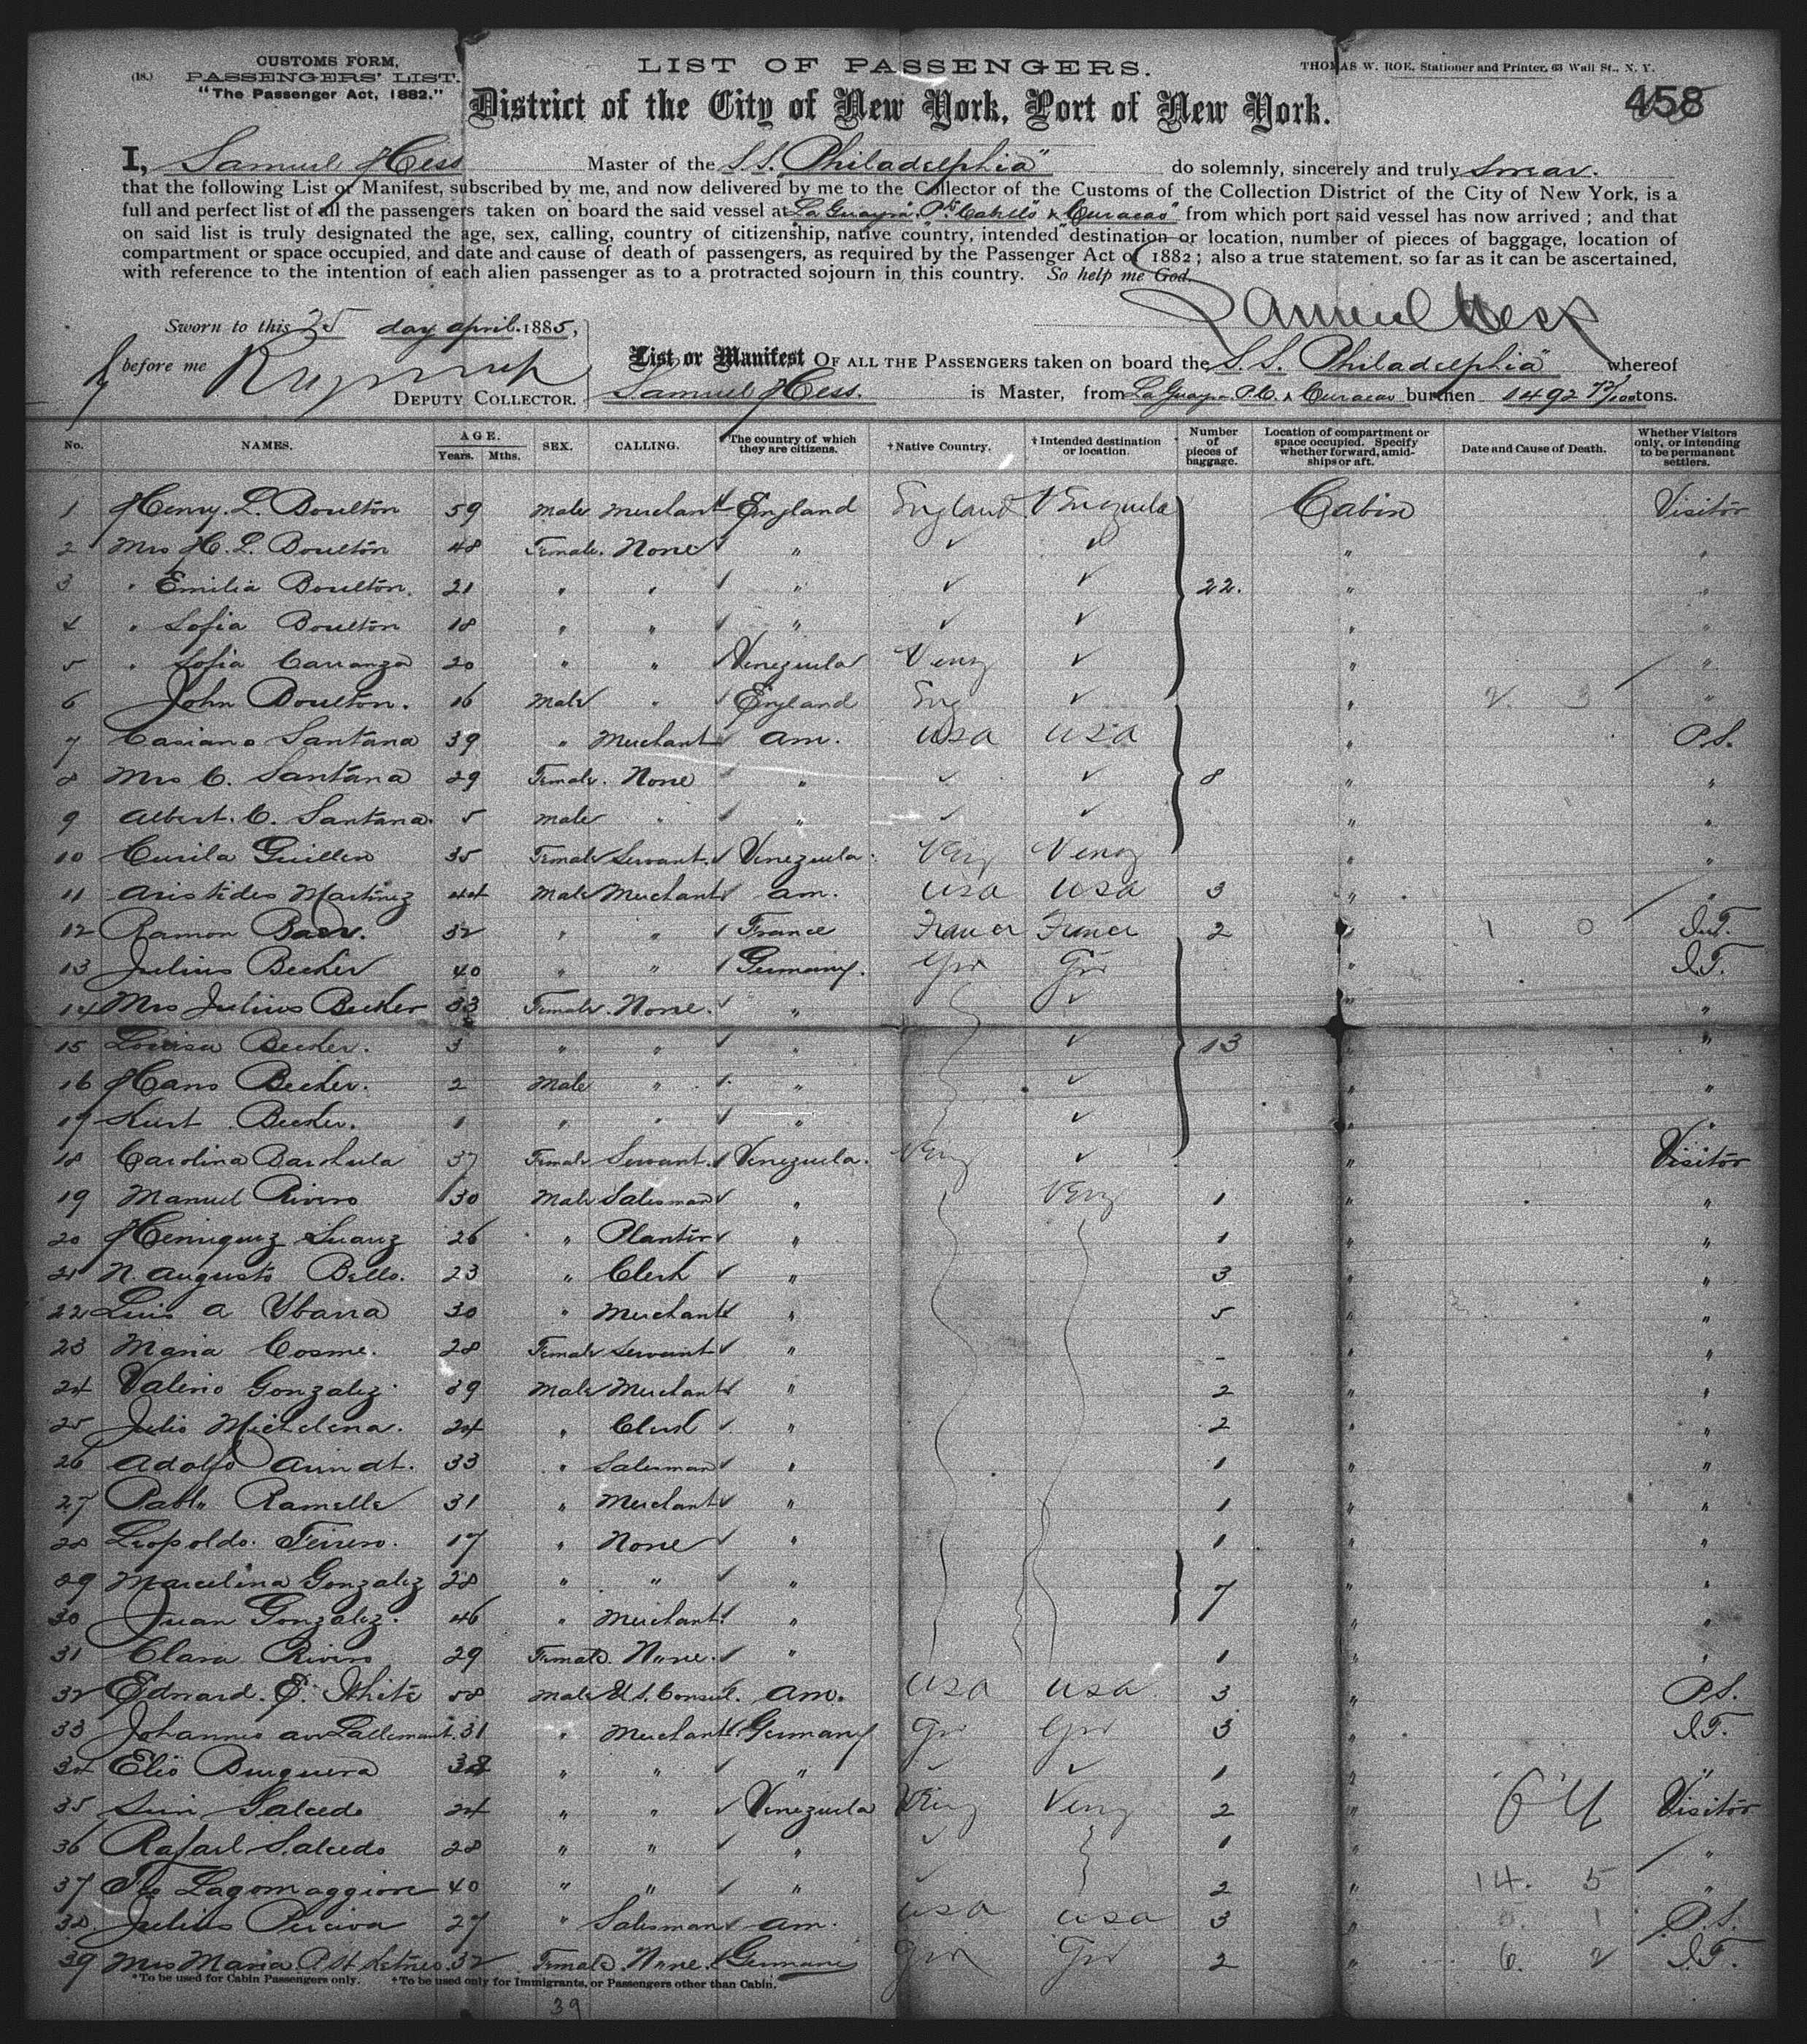 CUSTOMS FORM,
(18.) PASSENGERS' LIST.
"The Passenger Act, 1882."
LIST OF PASSENGERS.
THOMAS W. ROE, Stationer and Printer, 63 Wall St., N. Y.
458
District of the City of New York, Port of New York.
I, Samuel Hess Master of the S.S. "Philadelphia" do solemnly, sincerely and truly swear.
that the following List or Manifest, subscribed by me, and now delivered by me to the Collector of the Customs of the Collection District of the City of New York, is a
full and perfect list of all the passengers taken on board the said vessel at La Guayra, Pto Cabello & Curacao from which port said vessel has now arrived; and that
on said list is truly designated the age, sex, calling, country of citizenship, native country, intended destination or location, number of pieces of baggage, location of
compartment or space occupied, and date and cause of death of passengers, as required by the Passenger Act of 1882; also a true statement, so far as it can be ascertained,
with reference to the intention of each alien passenger as to a protracted sojourn in this country. So help me God.
Samuel Hess
Sworn to this 25 day april. 1885,
before me
DEPUTY COLLECTOR.
List or Manifest OF ALL THE PASSENGERS taken on board the S.S. "Philadelphia" whereof
Samuel Hess. is Master, from La Guayra P.C. & Curacao burthen 1492 72/100 tons.
No. NAMES. AGE. Years. Mths. SEX. CALLING. *The country of which they are citizens. †Native Country. †Intended destination or location. Number of pieces of baggage. Location of compartment or space occupied. Specify whether forward, amidships or aft. Date and Cause of Death. Whether Visitors only, or intending to be permanent settlers.
1 Henry. L. Boulton 59 Male Merchant England England Venezuela Cabin Visitor
2 Mrs H. L. Boulton 48 Female. None " ✓ ✓ " "
3 " Emilia Boulton. 21 " " " ✓ ✓ 22. " "
4 " Sofia Boulton 18 " " " ✓ ✓ " "
5 " Sofia Carranza 20 " " Venezuela Venz ✓ " "
6 John Boulton. 16 Male " England Eng ✓ " 2. 3 "
7 Casiano Santana 39 " Merchant am. USA USA " P.S.
8 Mrs C. Santana 29 Female. None " ✓ ✓ 8 " "
9 Albert. C. Santana. 5 male " " ✓ ✓ " "
10 Guillen 35 Female Servant. Venezuela. Venz Venz " "
11 Aristides Martinez 44 Male Merchant am. USA USA 3 " "
12 Ramon 32 " " France France France 2 " 1 0 I.T.
13 Julius Becker 40 " " Germany. Ger Ger " I.T.
14 Mrs Julius Becker 33 Female. None. " ✓ " "
15 Louisa Becker. 3 " " " ✓ 13 " "
16 Hans Becker. 2 Male " " ✓ " "
17 Kurt Becker. 1 " " " ✓ " "
18 Carolina 37 Female Servant. Venezuela. Venz ✓ " Visitor
19 Manuel Rivero 30 Male Salesman " Venz 1 " "
20 Henriquez Suarez 26 " Planter " 1 " "
21 N. Augusto Bello. 23 " Clerk " 3 " "
22 Luis A Ybarra 30 " Merchant " 5 " "
23 Maria Cosme. 28 Female Servant " - " "
24 Valerio Gonzalez 39 Male Merchant " 2 " "
25 Julio Michelena. 24 " Clerk " 2 " "
26 Adolfo Arindt. 33 " Salesman " 1 " "
27 Pablo Ramella 31 " Merchant " 1 " "
28 Leopoldo. 17 " None " 1 " "
29 Marcelina Gonzalez 28 " " " 7 " "
30 Juan Gonzalez. 46 " Merchant " " "
31 Clara Rivero 29 Female. None. " 1 " "
32 Edward. E. White 58 Male U.S. Consul. am. USA USA 3 " P.S.
33 Johannes Lallemant. 31 " Merchant Germany Ger Ger 3 " I.T.
34 Elio Burguera " " " ✓ ✓ 1 " "
35 Salcedo 24 " " Venezuela Venz Venz 2 " Visitor
36 Rafael Salcedo 28 " " " ✓ 1 " "
37 Lagomaggiore 40 " " " ✓ 2 " 14. 5 "
38. Julius 27 " Salesman am. USA USA 3 " 1 P.S.
39 Mrs Maria 32 Female. None. Germany Ger Ger 2 " 6. 2 I.T.
*To be used for Cabin Passengers only. †To be used only for Immigrants, or Passengers other than Cabin.
39